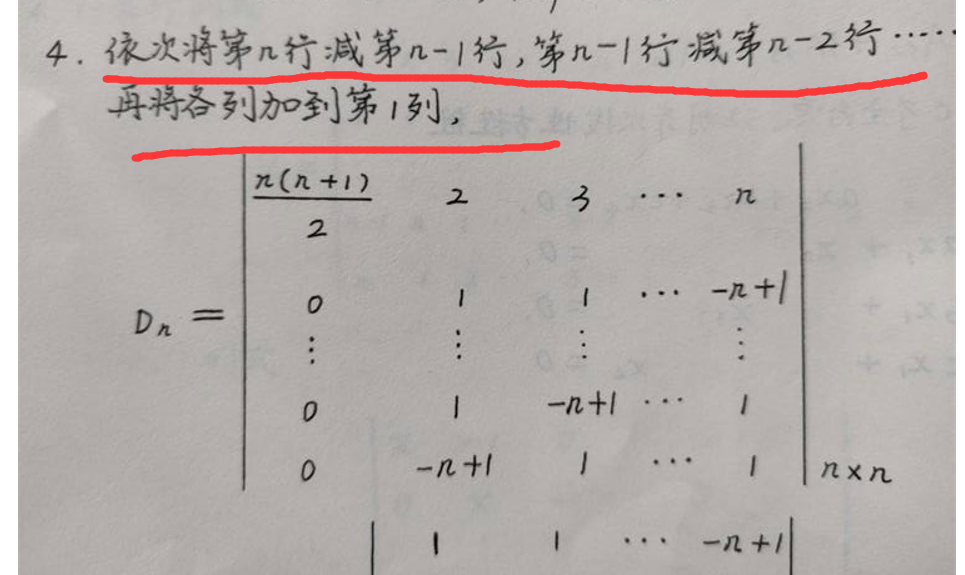 4. 依次将第n行减第n-1行,第n-1行减第n-2行……
再将各列加到第1列,
n(n+1)/2 2 3 … n
0 1 1 … -n+1
Dn = ⋮ ⋮ ⋮ ⋮
0 1 -n+1 … 1
0 -n+1 1 … 1 n×n
1 1 … -n+1